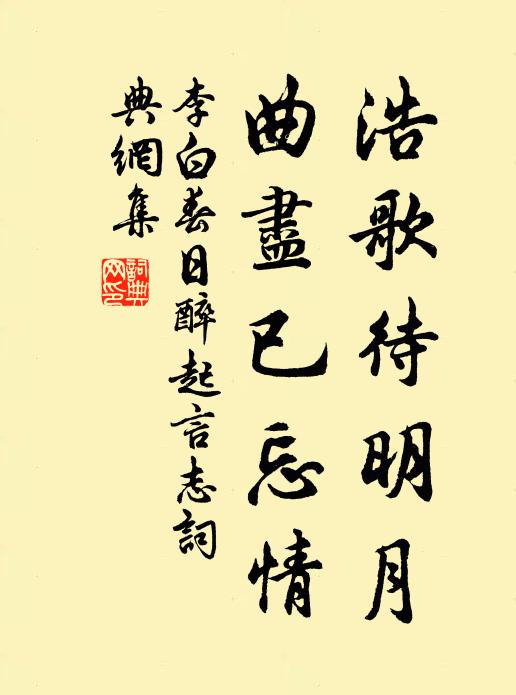 浩歌待明月
曲盡已忘情
李白春日醉起言志詞
典網集
詞典
网印